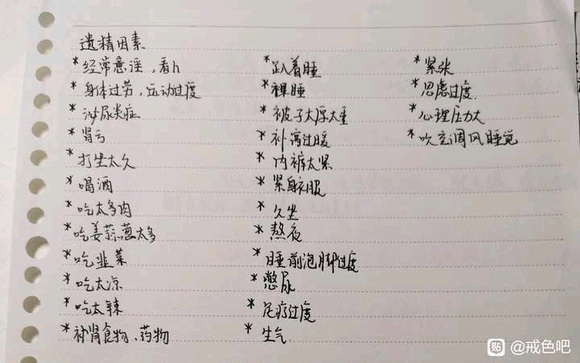 遗精因素
*经常意淫,看h
*身体过劳,运动过度
*泌尿炎症
*肾亏
*打坐太久
*喝酒
*吃太多肉
*吃姜蒜葱太多
*吃韭菜
*吃太凉
*吃太辣
*补肾食物、药物
*趴着睡
*裸睡
*被子太厚太重
*补泻过暖
*内裤太紧
*紧身衣服
*久坐
*熬夜
*睡前泡脚过度
*憋尿
*足疗过度
*生气
*紧张
*思虑过度
*心理压力大
*吹空调风睡觉
贴 @戒色吧